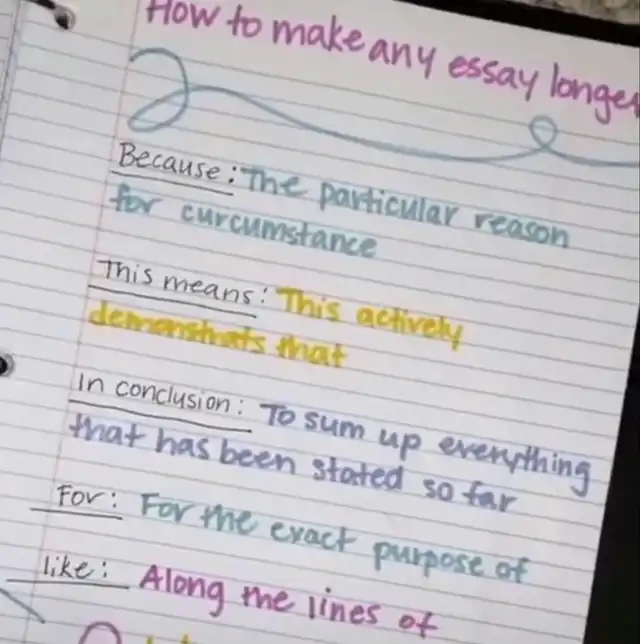 How to make any essay longer
Because: The particular reason
for curcumstance
This means: This actively
demonstrats that
In conclusion: To sum up everything
that has been stated so far
For: For the exact purpose of
like: Along the lines of